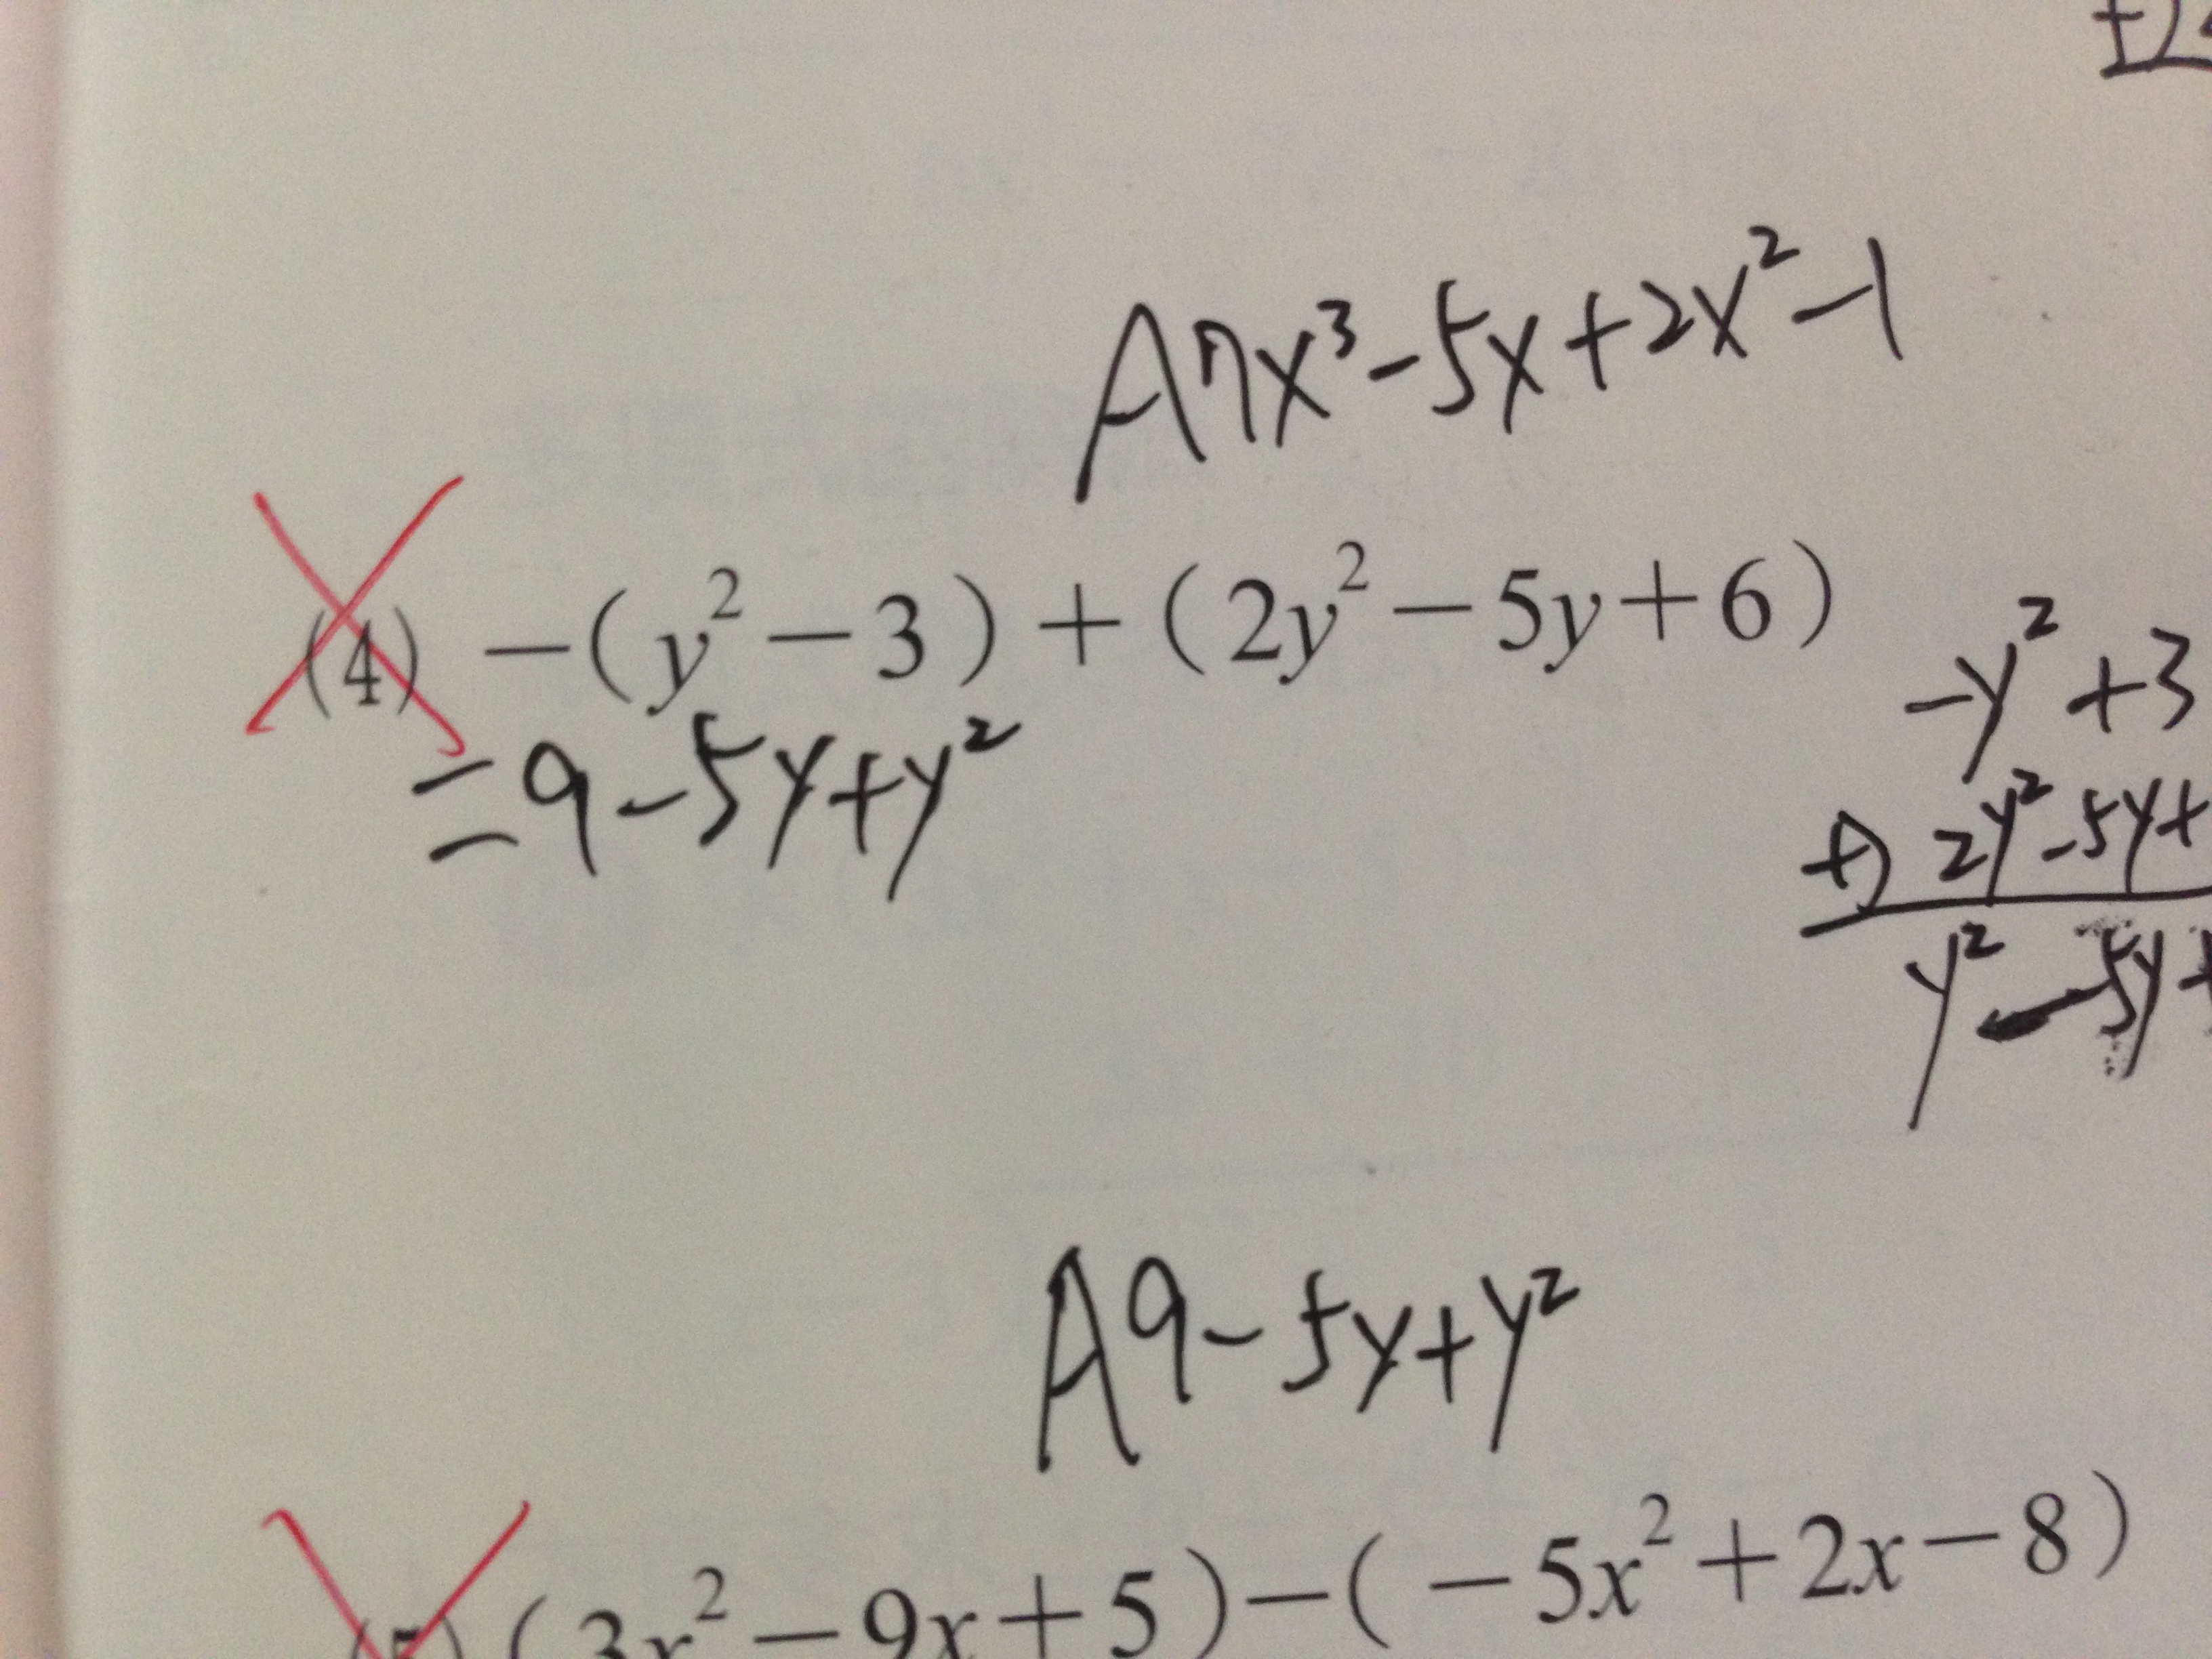 A 7x³-5x+2x²-1
(4) -(y²-3)+(2y²-5y+6)
=9-5y+y²
-y²+3
+) 2y²-5y+
y²-5y+
A 9-5y+y²
(3x²-9x+5)-(-5x²+2x-8)